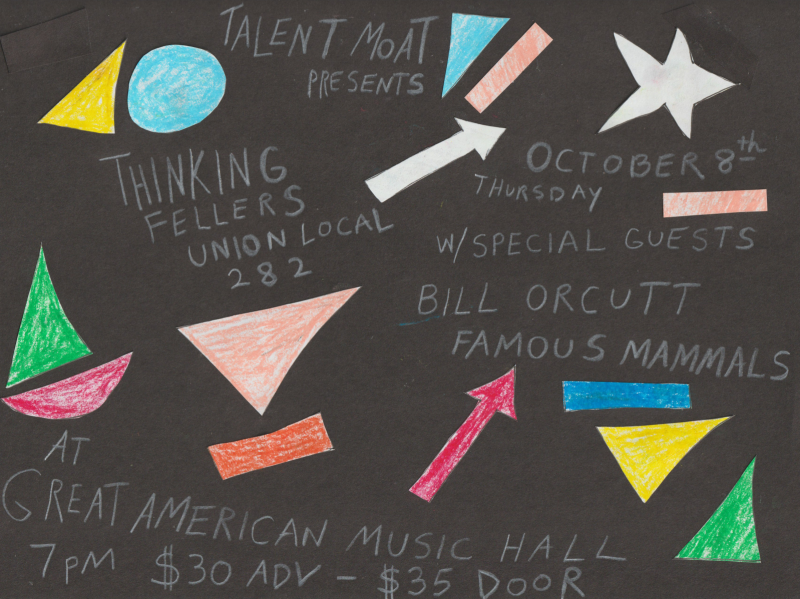 TALENT MOAT
PRESENTS
THINKING
FELLERS
UNION LOCAL
282
OCTOBER 8th
THURSDAY
W/SPECIAL GUESTS
BILL ORCUTT
FAMOUS MAMMALS
AT
GREAT AMERICAN MUSIC HALL
7PM $30 ADV - $35 DOOR